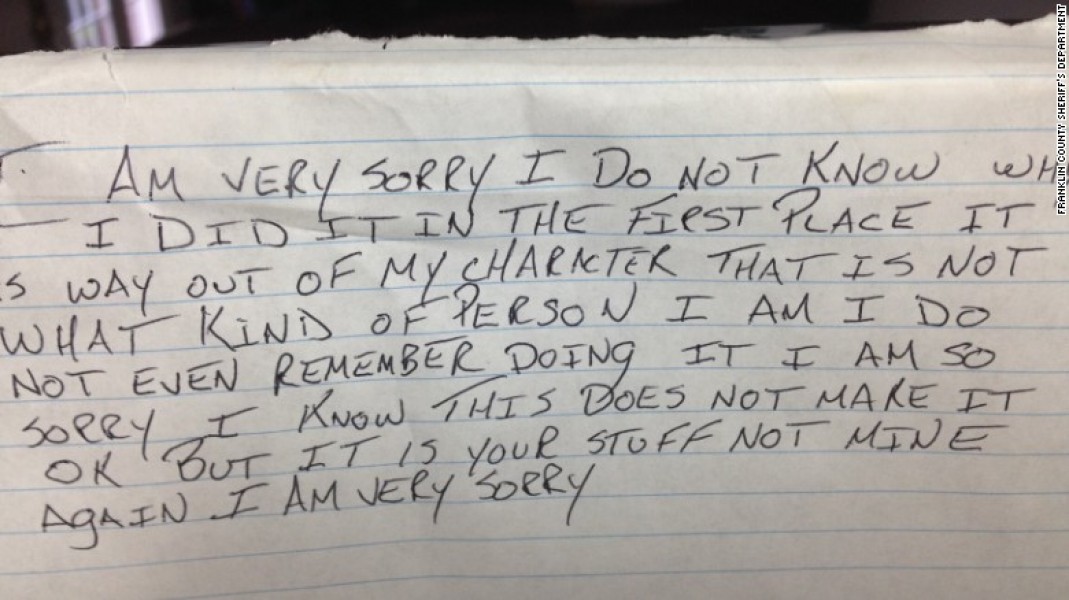 I AM VERY SORRY I DO NOT KNOW WH
I DID IT IN THE FIRST PLACE IT
IS WAY OUT OF MY CHARACTER THAT IS NOT
WHAT KIND OF PERSON I AM I DO
NOT EVEN REMEMBER DOING IT I AM SO
SORRY I KNOW THIS DOES NOT MAKE IT
OK BUT IT IS YOUR STUFF NOT MINE
AGAIN I AM VERY SORRY
FRANKLIN COUNTY SHERIFF'S DEPARTMENT